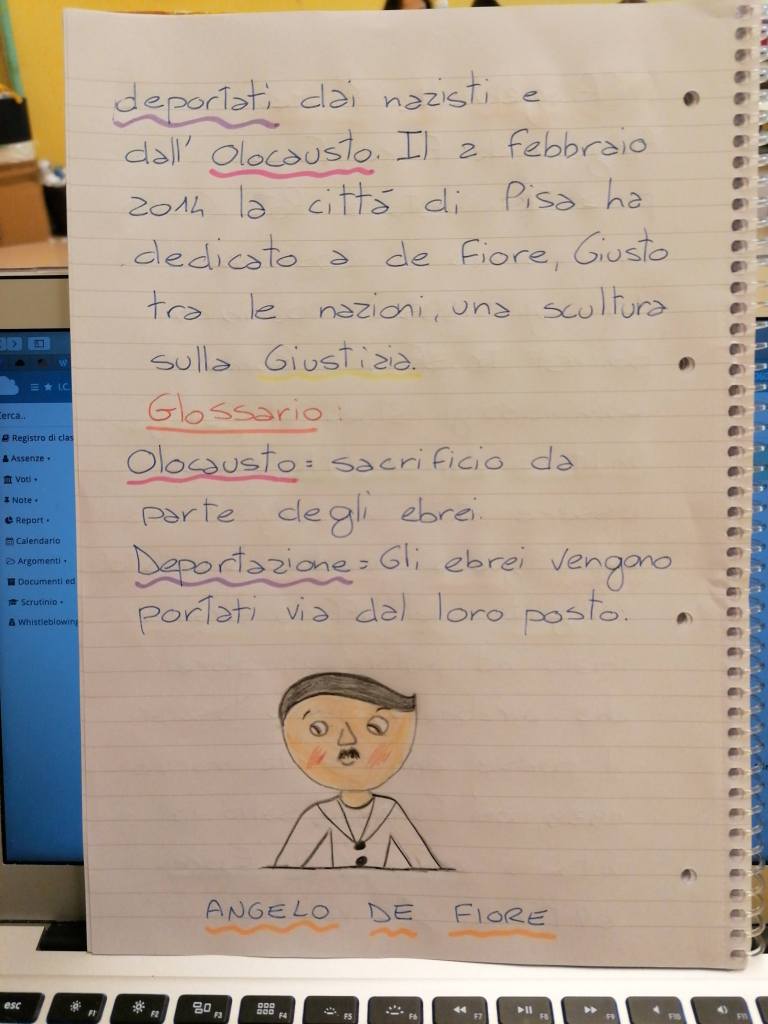 deportati dai nazisti e
dall' Olocausto. Il 2 febbraio
2014 la cittá di Pisa ha
dedicato a de Fiore, Giusto
tra le nazioni, una scultura
sulla Giustizia.
Glossario:
Olocausto = sacrificio da
parte degli ebrei.
Deportazione = Gli ebrei vengono
portati via dal loro posto.
ANGELO DE FIORE
I.C.
Cerca..
Registro di clas
Assenze
Voti
Note
Report
Calendario
Argomenti
Documenti ed
Scrutinio
Whistleblowing
esc F1 F2 F3 F4 F5 F6 F7 F8 F9 F10 F11